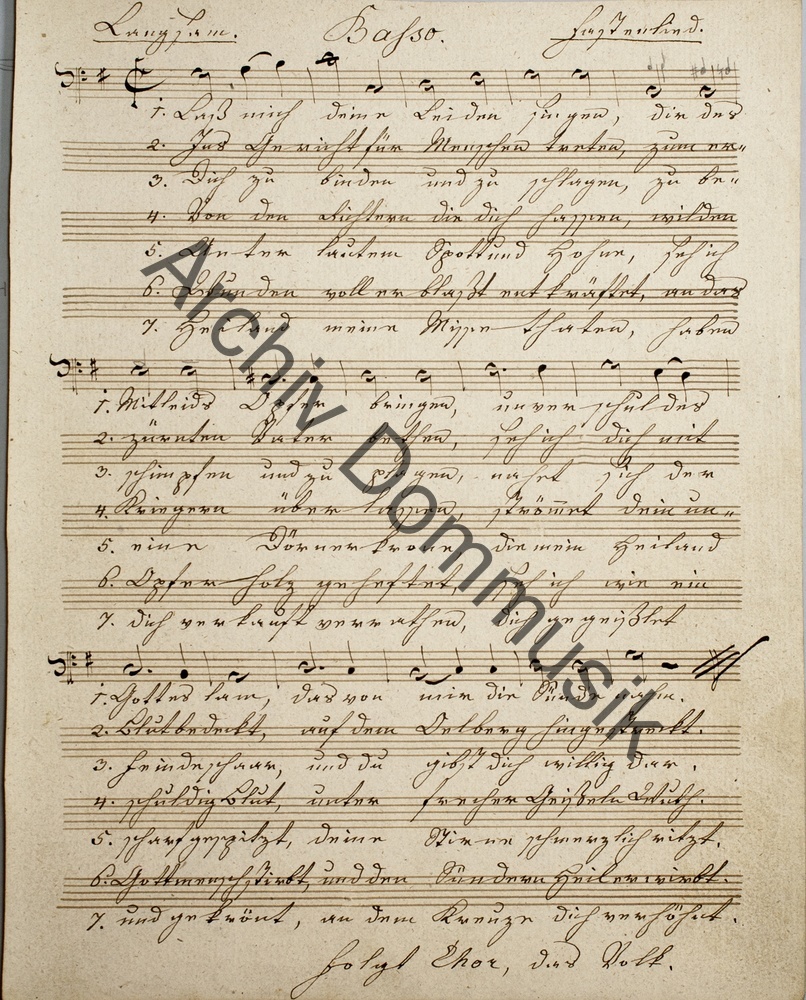 Langsam. Basso. Fastenlied.
1. Laß mich deine Leiden singen, dir des
2. Ins Gericht für Menschen treten, zum er-
3. Dich zu binden und zu schlagen, zu be-
4. Von den Richtern die dich hassen, wilden
5. Unter lautem Spott und Hohne, seh ich
6. Wunden voll erblaßt entkräftet, an das
7. Heiland meine Missethaten, haben
1. Mitleids Opfer bringen, unverschuldes
2. zürnten Vater bethen, seh ich dich mit
3. schimpfen und zu plagen, nahet sich der
4. Kriegern überlassen, strömmet dein un-
5. eine Dörnerkrone, die mein Heiland
6. Opferholz geheftet, seh ich wie ein
7. dich verkauft verrathen, dich gegeißlet
1. Gottes lam, das von mir die Sünde nahm.
2. Blutbedeckt, auf dem Oelberg hingestreckt.
3. Feindeschaar, und du gibst dich willig dar.
4. schuldig Blut, unter frecher Geißeln Wuth.
5. scharf gespitzt, deine Stirne schmerzlich ritzt.
6. Gottmensch stirbt, und den Sündern Heil erwirbt.
7. und gekrönt, an dem Kreuze dich verhöhnt.
folgt Chor, das Volk.
Archiv Dommusik